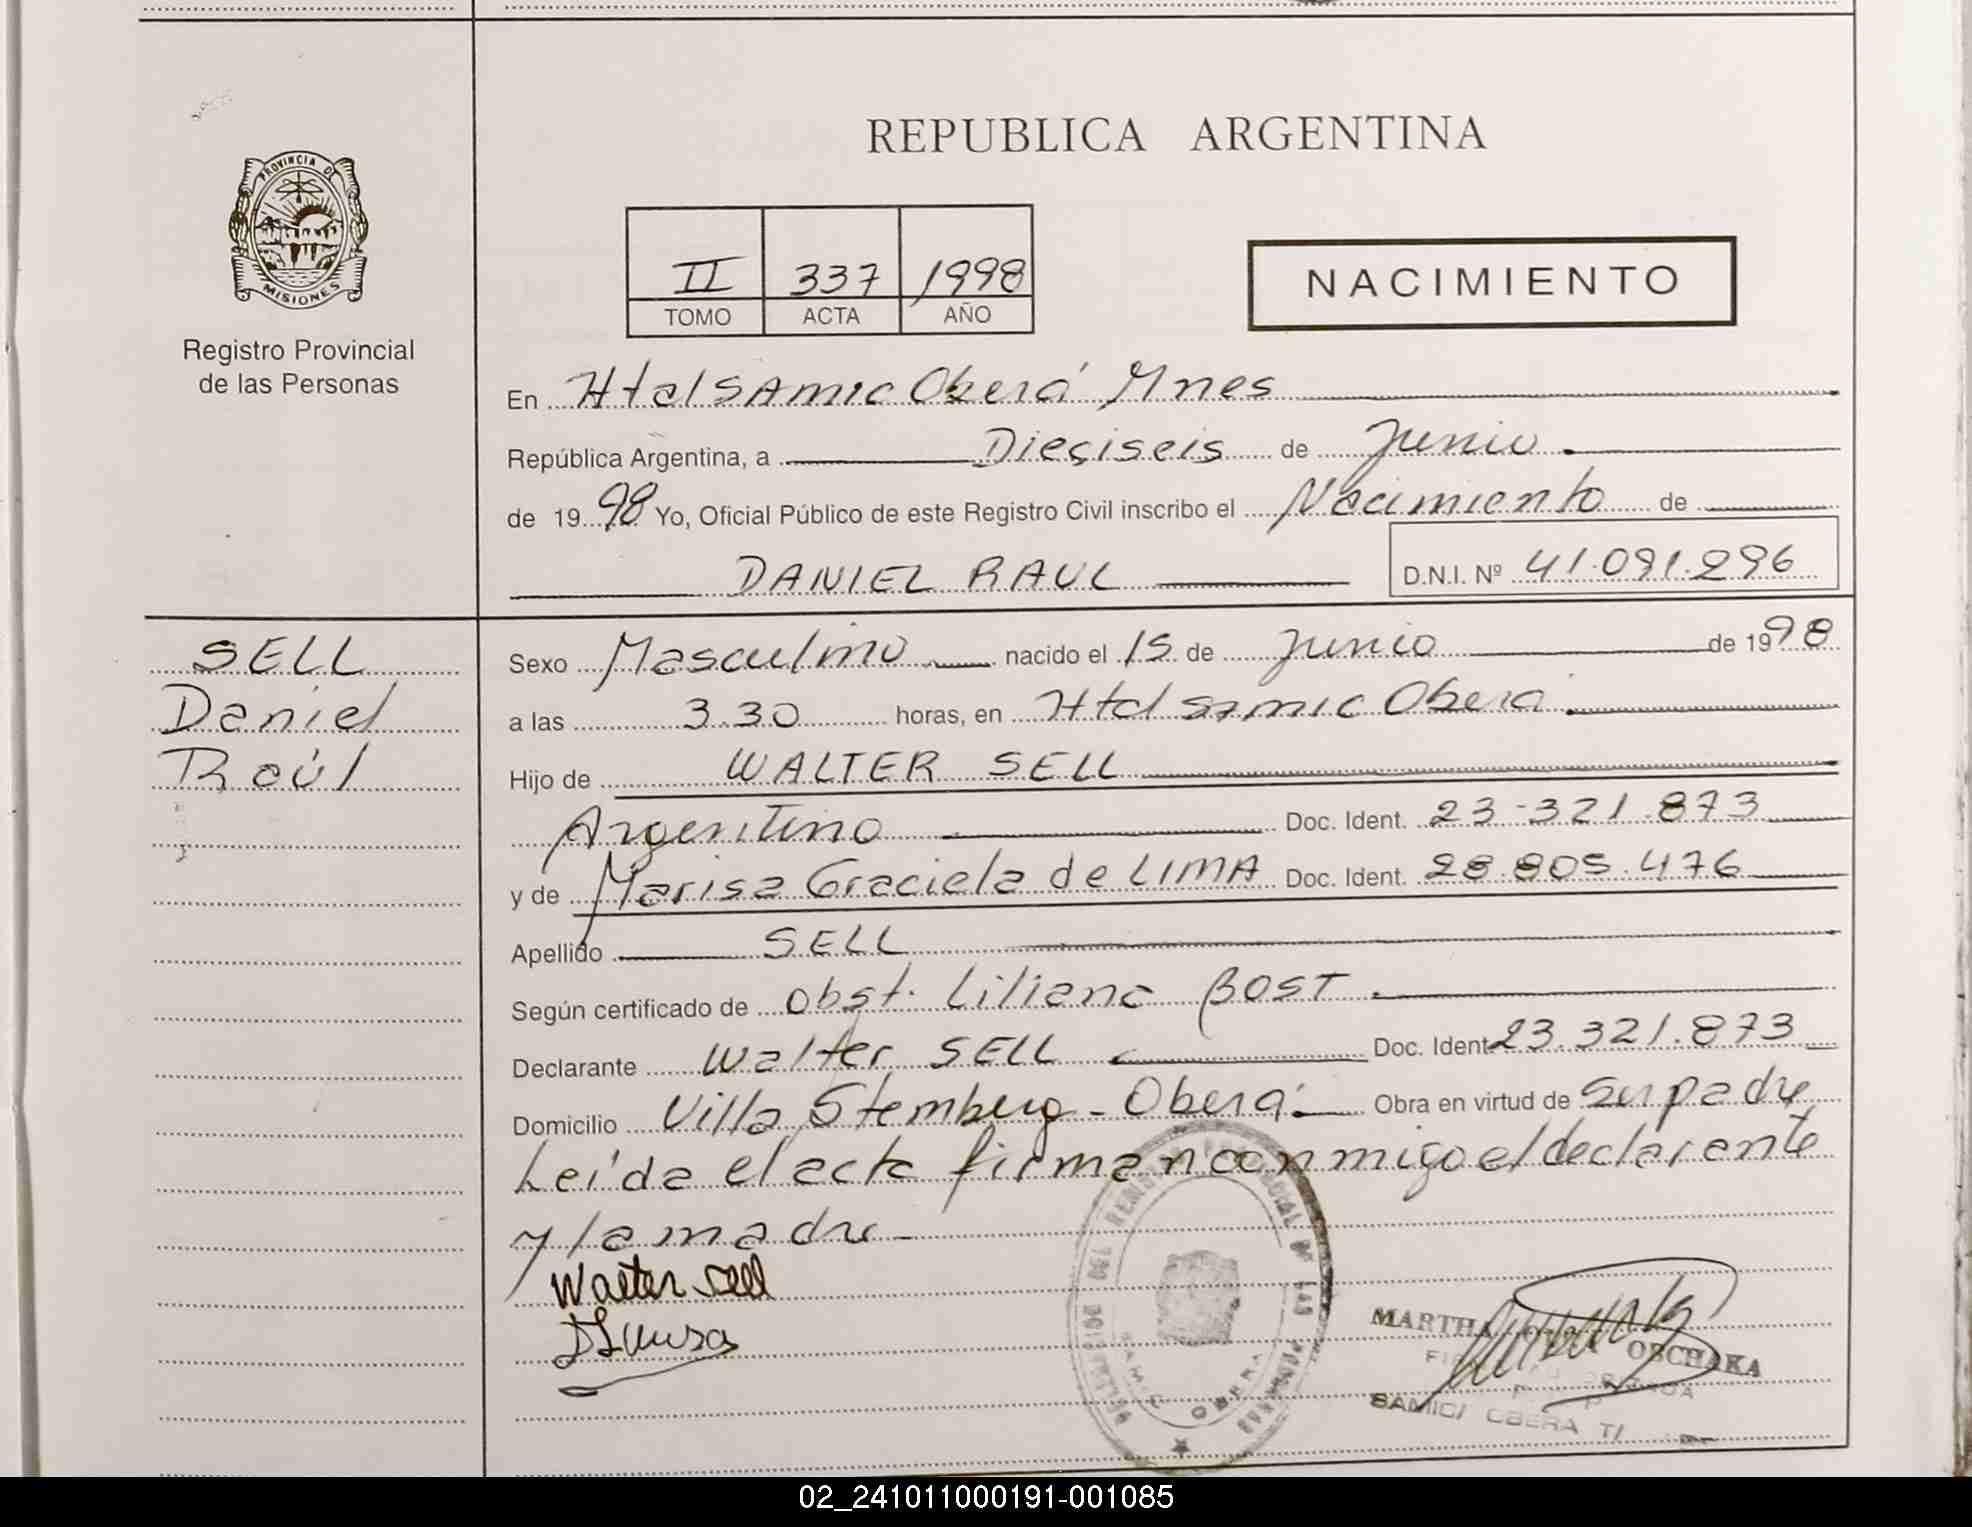 REPUBLICA ARGENTINA
PROVINCIA DE
MISIONES
Registro Provincial
de las Personas
II 337 1998
TOMO ACTA AÑO
NACIMIENTO
En Htal SAMIC Oberá Mnes
República Argentina, a Dieciseis de Junio.
de 1998 Yo, Oficial Público de este Registro Civil inscribo el Nacimiento de
DANIEL RAUL D.N.I. Nº 41.091.296
SELL
Daniel
Raúl
Sexo Masculino nacido el 15 de Junio de 1998
a las 3.30 horas, en Htal Samic Oberá.
Hijo de WALTER SELL
Argentino Doc. Ident. 23-321.873
y de Marisa Graciela de LIMA Doc. Ident. 28.805.476
Apellido SELL
Según certificado de Obst. Liliana BOST.
Declarante Walter SELL Doc. Ident 23.321.873
Domicilio Villa Stemberg - Oberá. Obra en virtud de su padre
Leída el acta firman conmigo el declarante
y la madre
Walter Sell
MARTHA OBCHAKA
SAMIC/ OBERA
OBERA
02_241011000191-001085